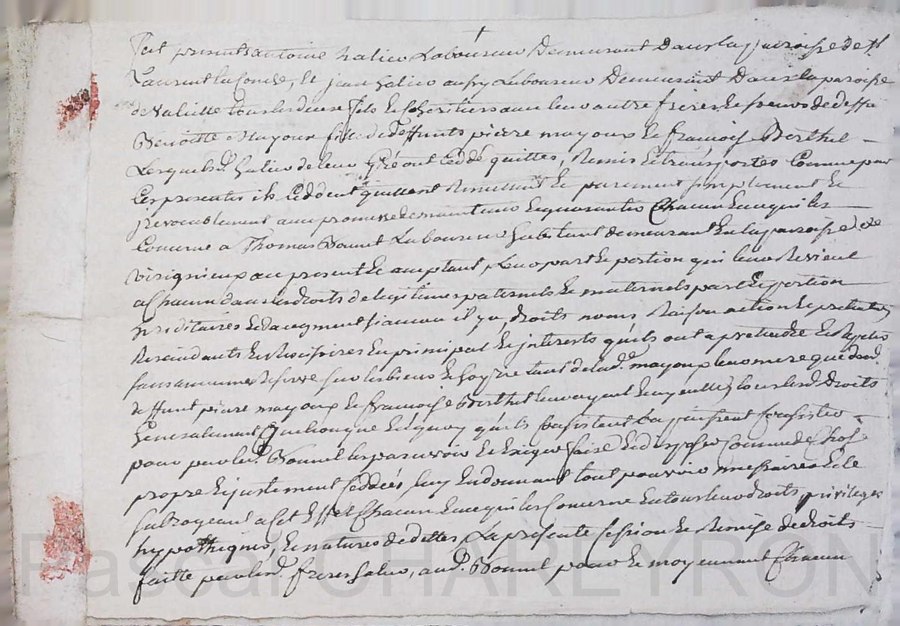 Fut presents antoine Salico Laboureur Demeurant Dans la paroisse de St
Laurent la Conche, & jean Salico aussy Laboureur Demeurant Dans la paroisse
de Valeille tous les deux fils & heritiers leur autre frere de deffu
Benoitte Mayoux fille de deffunts pierre mayoux & francoise Berthel
Lesquels Salico de leur Gré ont Ceddé quittes, Remis & transportes Comme par
Ces presentes ils Ceddent quittent Remettent & purement simplement &
jrrevocablement avec promesse de maintenir & garantir Chacun en ce qui les
Concerne a Thomas Bonnet Laboureur habitant demeurant en la paroisse de
Virignieux present & acceptant Leur part & portion qui leur Revient
a Chacun dans les droits de legitimes paternels & maternels part & portion
hereditaires & d'augment si aucun il y a, droits noms Raison action & pretention
Rescindants & Rescisoires en principal & interests qu'ils ont a pretendre &
sans aucune Reserve sur les biens & hoyrie tant de lad. mayoux leur mere que
deffunt pierre mayoux & francoise Berthel en quoy
Generalement Quelconque & quoy qu'ils Consistent & puissent Consister
pour par led. Bonnet les percevoir & Exiger faire & disposer Comme de Chose
propre & justement Ceddées, luy en donnant tout pouvoir necessaires & le
subrogeant a Cet effet Chacun en ce qui les Concerne en tous leurs droits privileges
hypotheques, & natures de dettes La presente Cession & Remise de droits
faitte par lesd. freres Salico, aud. Bonnet pour & moyennant Chacun
Pascal CHAREYRON